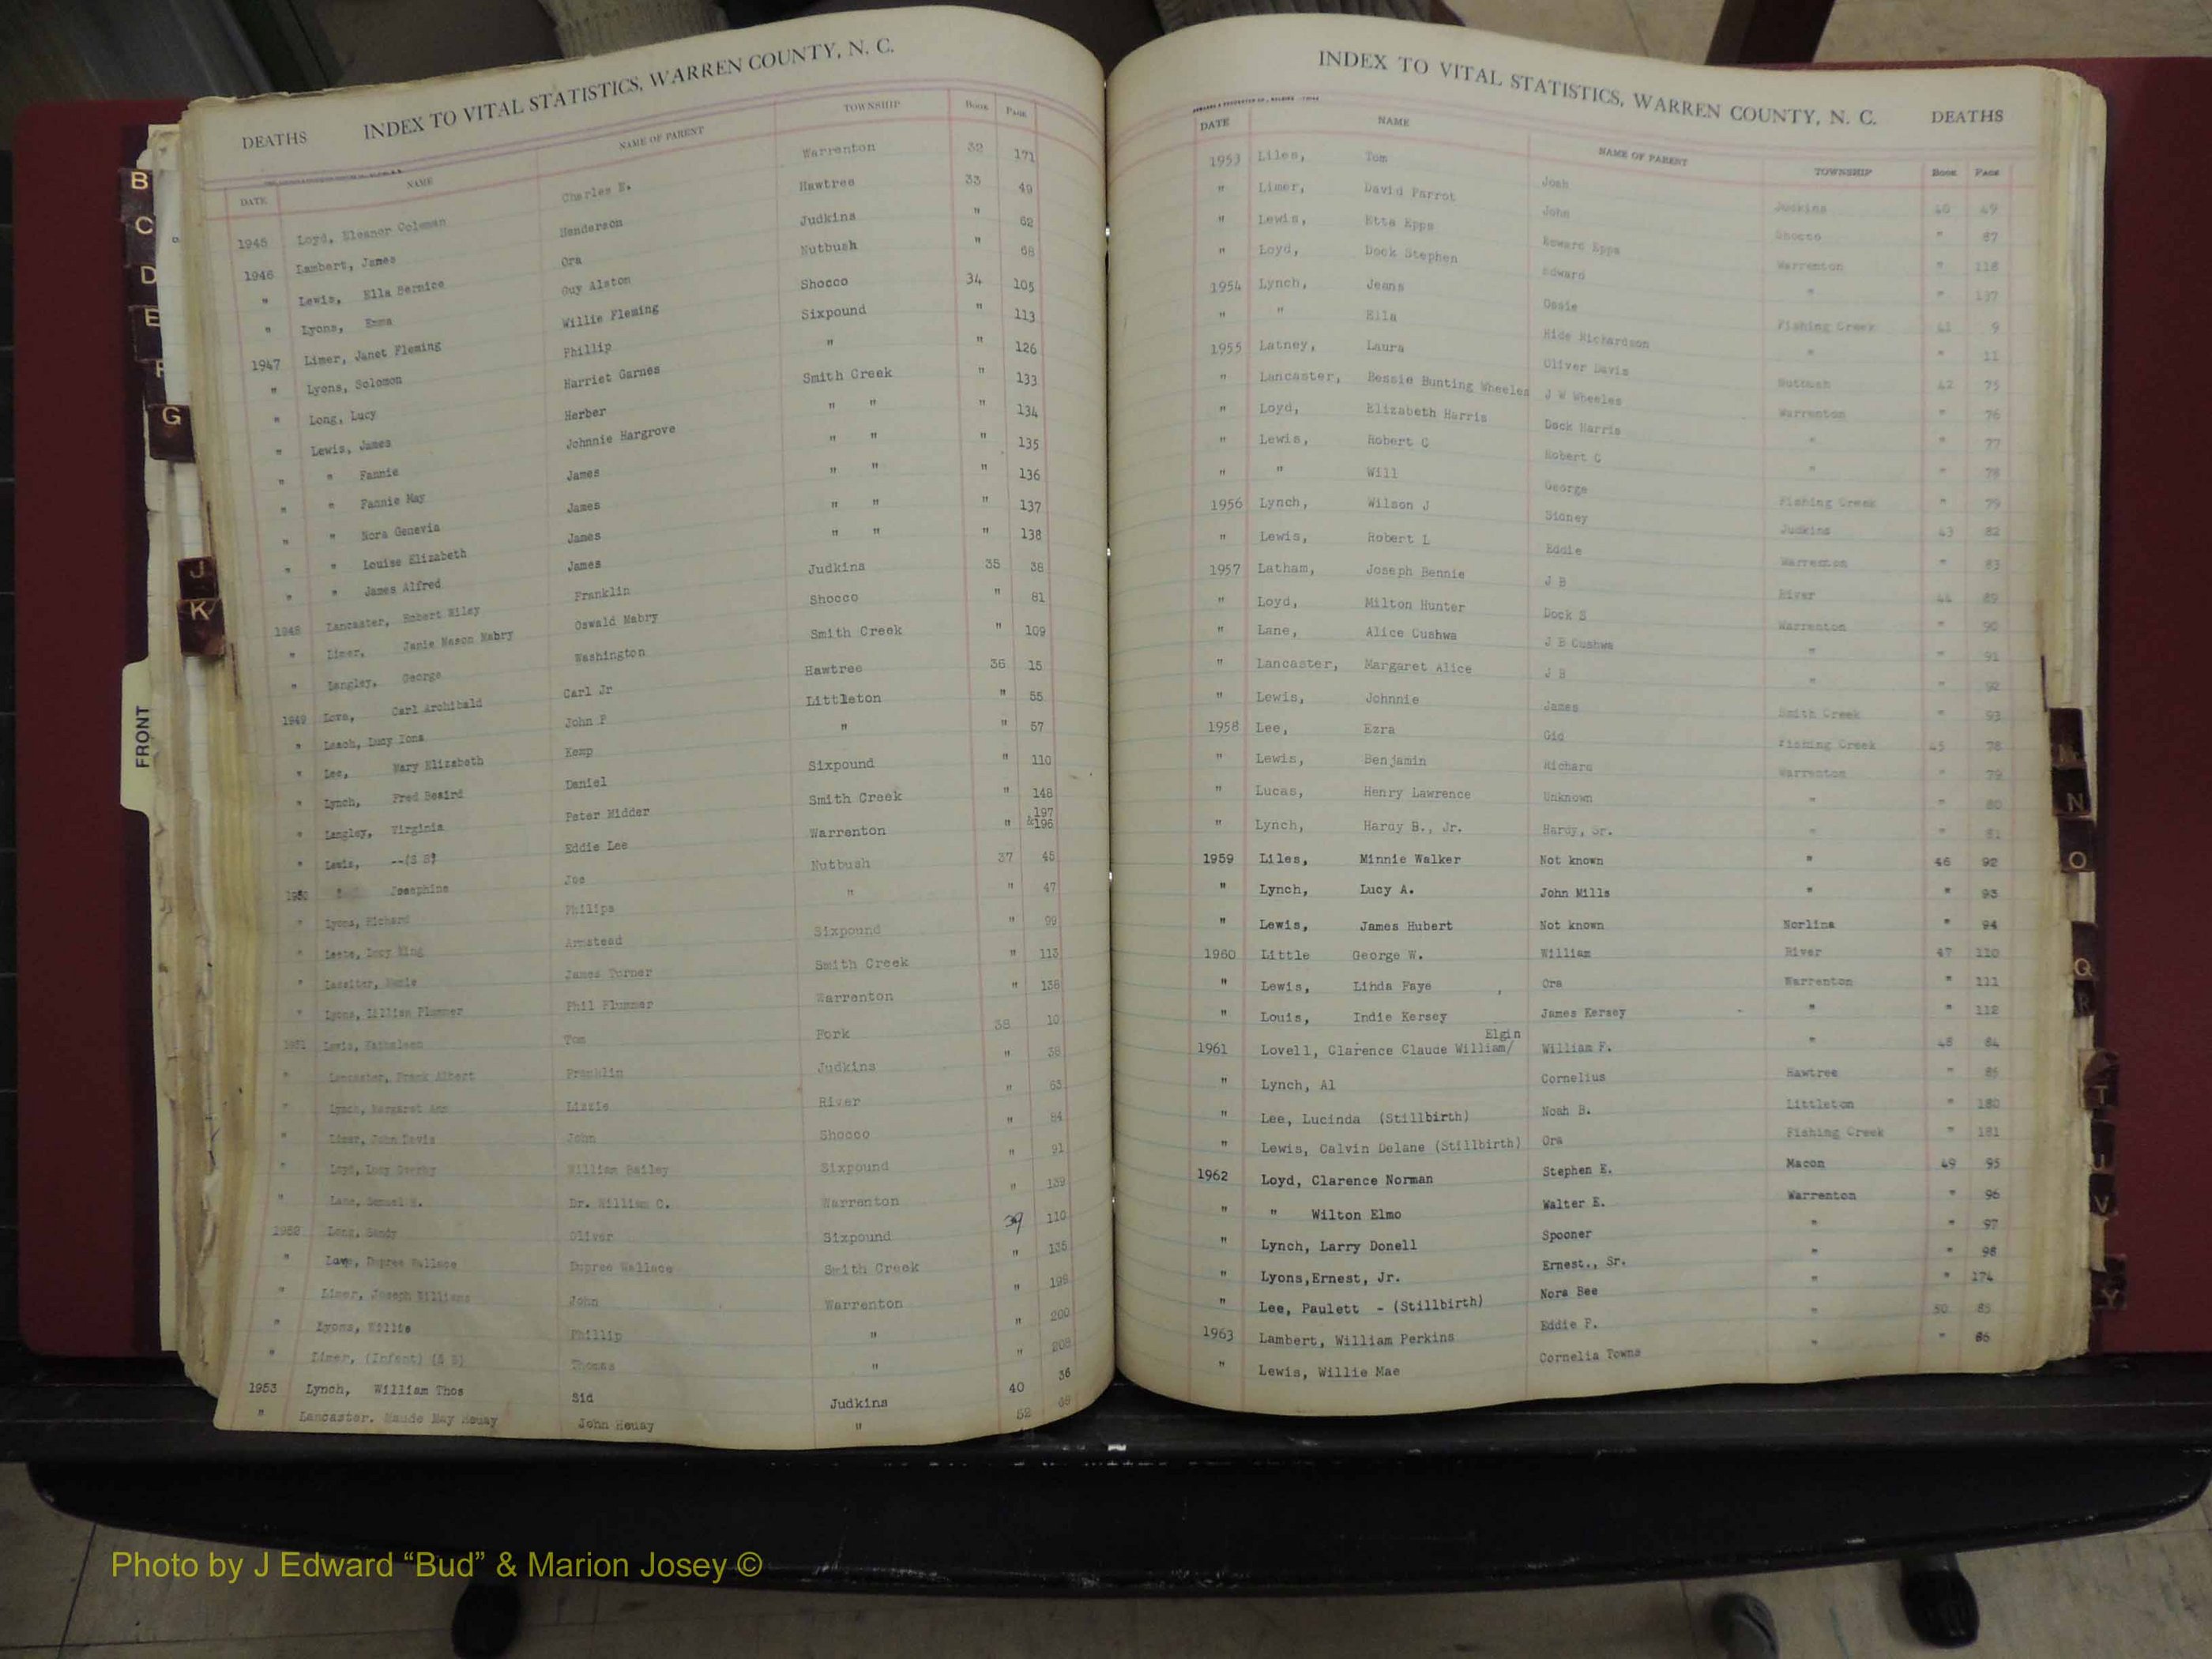 DEATHS INDEX TO VITAL STATISTICS, WARREN COUNTY, N. C.
DATE NAME NAME OF PARENT TOWNSHIP BOOK PAGE
1945 Loyd, Eleanor Coleman Charles E. Warrenton 32 171
1946 Lambert, James Henderson Hawtree 33 49
" Lewis, Ella Bernice Ora Judkins " 62
" Lyons, Emma Guy Alston Nutbush " 68
1947 Limer, Janet Fleming Willie Fleming Shocco 34 105
" Lyons, Solomon Phillip Sixpound " 113
" Long, Lucy Harriet Garnes " " 126
" Lewis, James Herber Smith Creek " 133
" " Fannie Johnnie Hargrove " " " 134
" " Fannie May James " " " 135
" " Nora Genevia James " " " 136
" " Louise Elizabeth James " " " 137
" " James Alfred James " " " 138
1948 Lancaster, Robert Wiley Franklin Judkins 35 38
" Limer, Janie Mason Mabry Oswald Mabry Shocco " 81
" Langley, George Washington Smith Creek " 109
1949 Love, Carl Archibald Carl Jr Hawtree 36 15
" Leach, Lucy John P Littleton " 55
" Lee, Mary Elizabeth Kemp " " 57
" Lynch, Fred Beaird Daniel Sixpound " 110
" Langley, Virginia Peter Midder Smith Creek " 148
" Lewis, --(S B) Eddie Lee Warrenton " 197 &196
1950 " Josephine Joe Nutbush 37 45
" Lyons, Richard Philips " " 47
" Lucy King Armstead Sixpound " 99
" Lassiter, James Turner Smith Creek " 113
" Lyons, Lillian Plummer Phil Plummer Warrenton " 138
1951 Lewis, Kathaleen Tom Fork 38 10
" Lancaster, Frank Albert Franklin Judkins " 38
" Lynch, Margaret Ann Lizzie River " 63
" Limer, John Davis John Shocco " 84
" Loyd, Lucy William Bailey Sixpound " 91
" Lane, Samuel Dr. William C. Warrenton " 139
1952 Long, Sandy Oliver Sixpound 39 110
" Love, Dupree Wallace Dupree Wallace Smith Creek " 135
" Limer, Joseph Williams John Warrenton " 198
" Lyons, Willie Phillip " " 200
" Limer, (Infant) (S B) Thomas " " 208
1953 Lynch, William Thos Sid Judkins 40 36
" Lancaster. Maude May Houay John Houay " 52 68
INDEX TO VITAL STATISTICS, WARREN COUNTY, N. C. DEATHS
DATE NAME NAME OF PARENT TOWNSHIP BOOK PAGE
1953 Liles, Tom Josh Judkins 40 49
" Limer, David Parrot John Shocco " 87
" Lewis, Etta Epps Edward Epps Warrenton " 118
" Loyd, Dock Stephen Edward " " 137
1954 Lynch, Jeans Ossie Fishing Creek 41 9
" " Ella Hide Richardson " " 11
1955 Latney, Laura Oliver Davis Nutbush 42 75
" Lancaster, Bessie Bunting Wheeles J W Wheeles Warrenton " 76
" Loyd, Elizabeth Harris Dock Harris " " 77
" Lewis, Robert C Robert C " " 78
" " Will George Fishing Creek " 79
1956 Lynch, Wilson J Sidney Judkins 43 82
" Lewis, Robert L Eddie Warrenton " 83
1957 Latham, Joseph Bennie J B River 44 89
" Loyd, Milton Hunter Dock S Warrenton " 90
" Lane, Alice Cushwa J B Cushwa " " 91
" Lancaster, Margaret Alice J B " " 92
" Lewis, Johnnie James Smith Creek " 93
1958 Lee, Ezra Gid Fishing Creek 45 78
" Lewis, Benjamin Richard Warrenton " 79
" Lucas, Henry Lawrence Unknown " " 80
" Lynch, Hardy B., Jr. Hardy, Sr. " " 81
1959 Liles, Minnie Walker Not known " 46 92
" Lynch, Lucy A. John Mills " " 93
" Lewis, James Hubert Not known Norlina " 94
1960 Little George W. William River 47 110
" Lewis, Linda Faye Ora Warrenton " 111
" Louis, Indie Kersey James Kersey " " 112
Elgin
1961 Lovell, Clarence Claude William/ William F. " 48 84
" Lynch, Al Cornelius Hawtree " 85
" Lee, Lucinda (Stillbirth) Noah B. Littleton " 180
" Lewis, Calvin Delane (Stillbirth) Ora Fishing Creek " 181
1962 Loyd, Clarence Norman Stephen E. Macon 49 95
" " Wilton Elmo Walter E. Warrenton " 96
" Lynch, Larry Donell Spooner " " 97
" Lyons,Ernest, Jr. Ernest., Sr. " " 98
" Lee, Paulett - (Stillbirth) Nora Bee " " 174
1963 Lambert, William Perkins Eddie P. " 50 85
" Lewis, Willie Mae Cornelia Towns " " 86
B
C
D
E
F
G
J
K
FRONT
M
N
O
Q
R
T
U
V
Y
Photo by J Edward “Bud” & Marion Josey ©